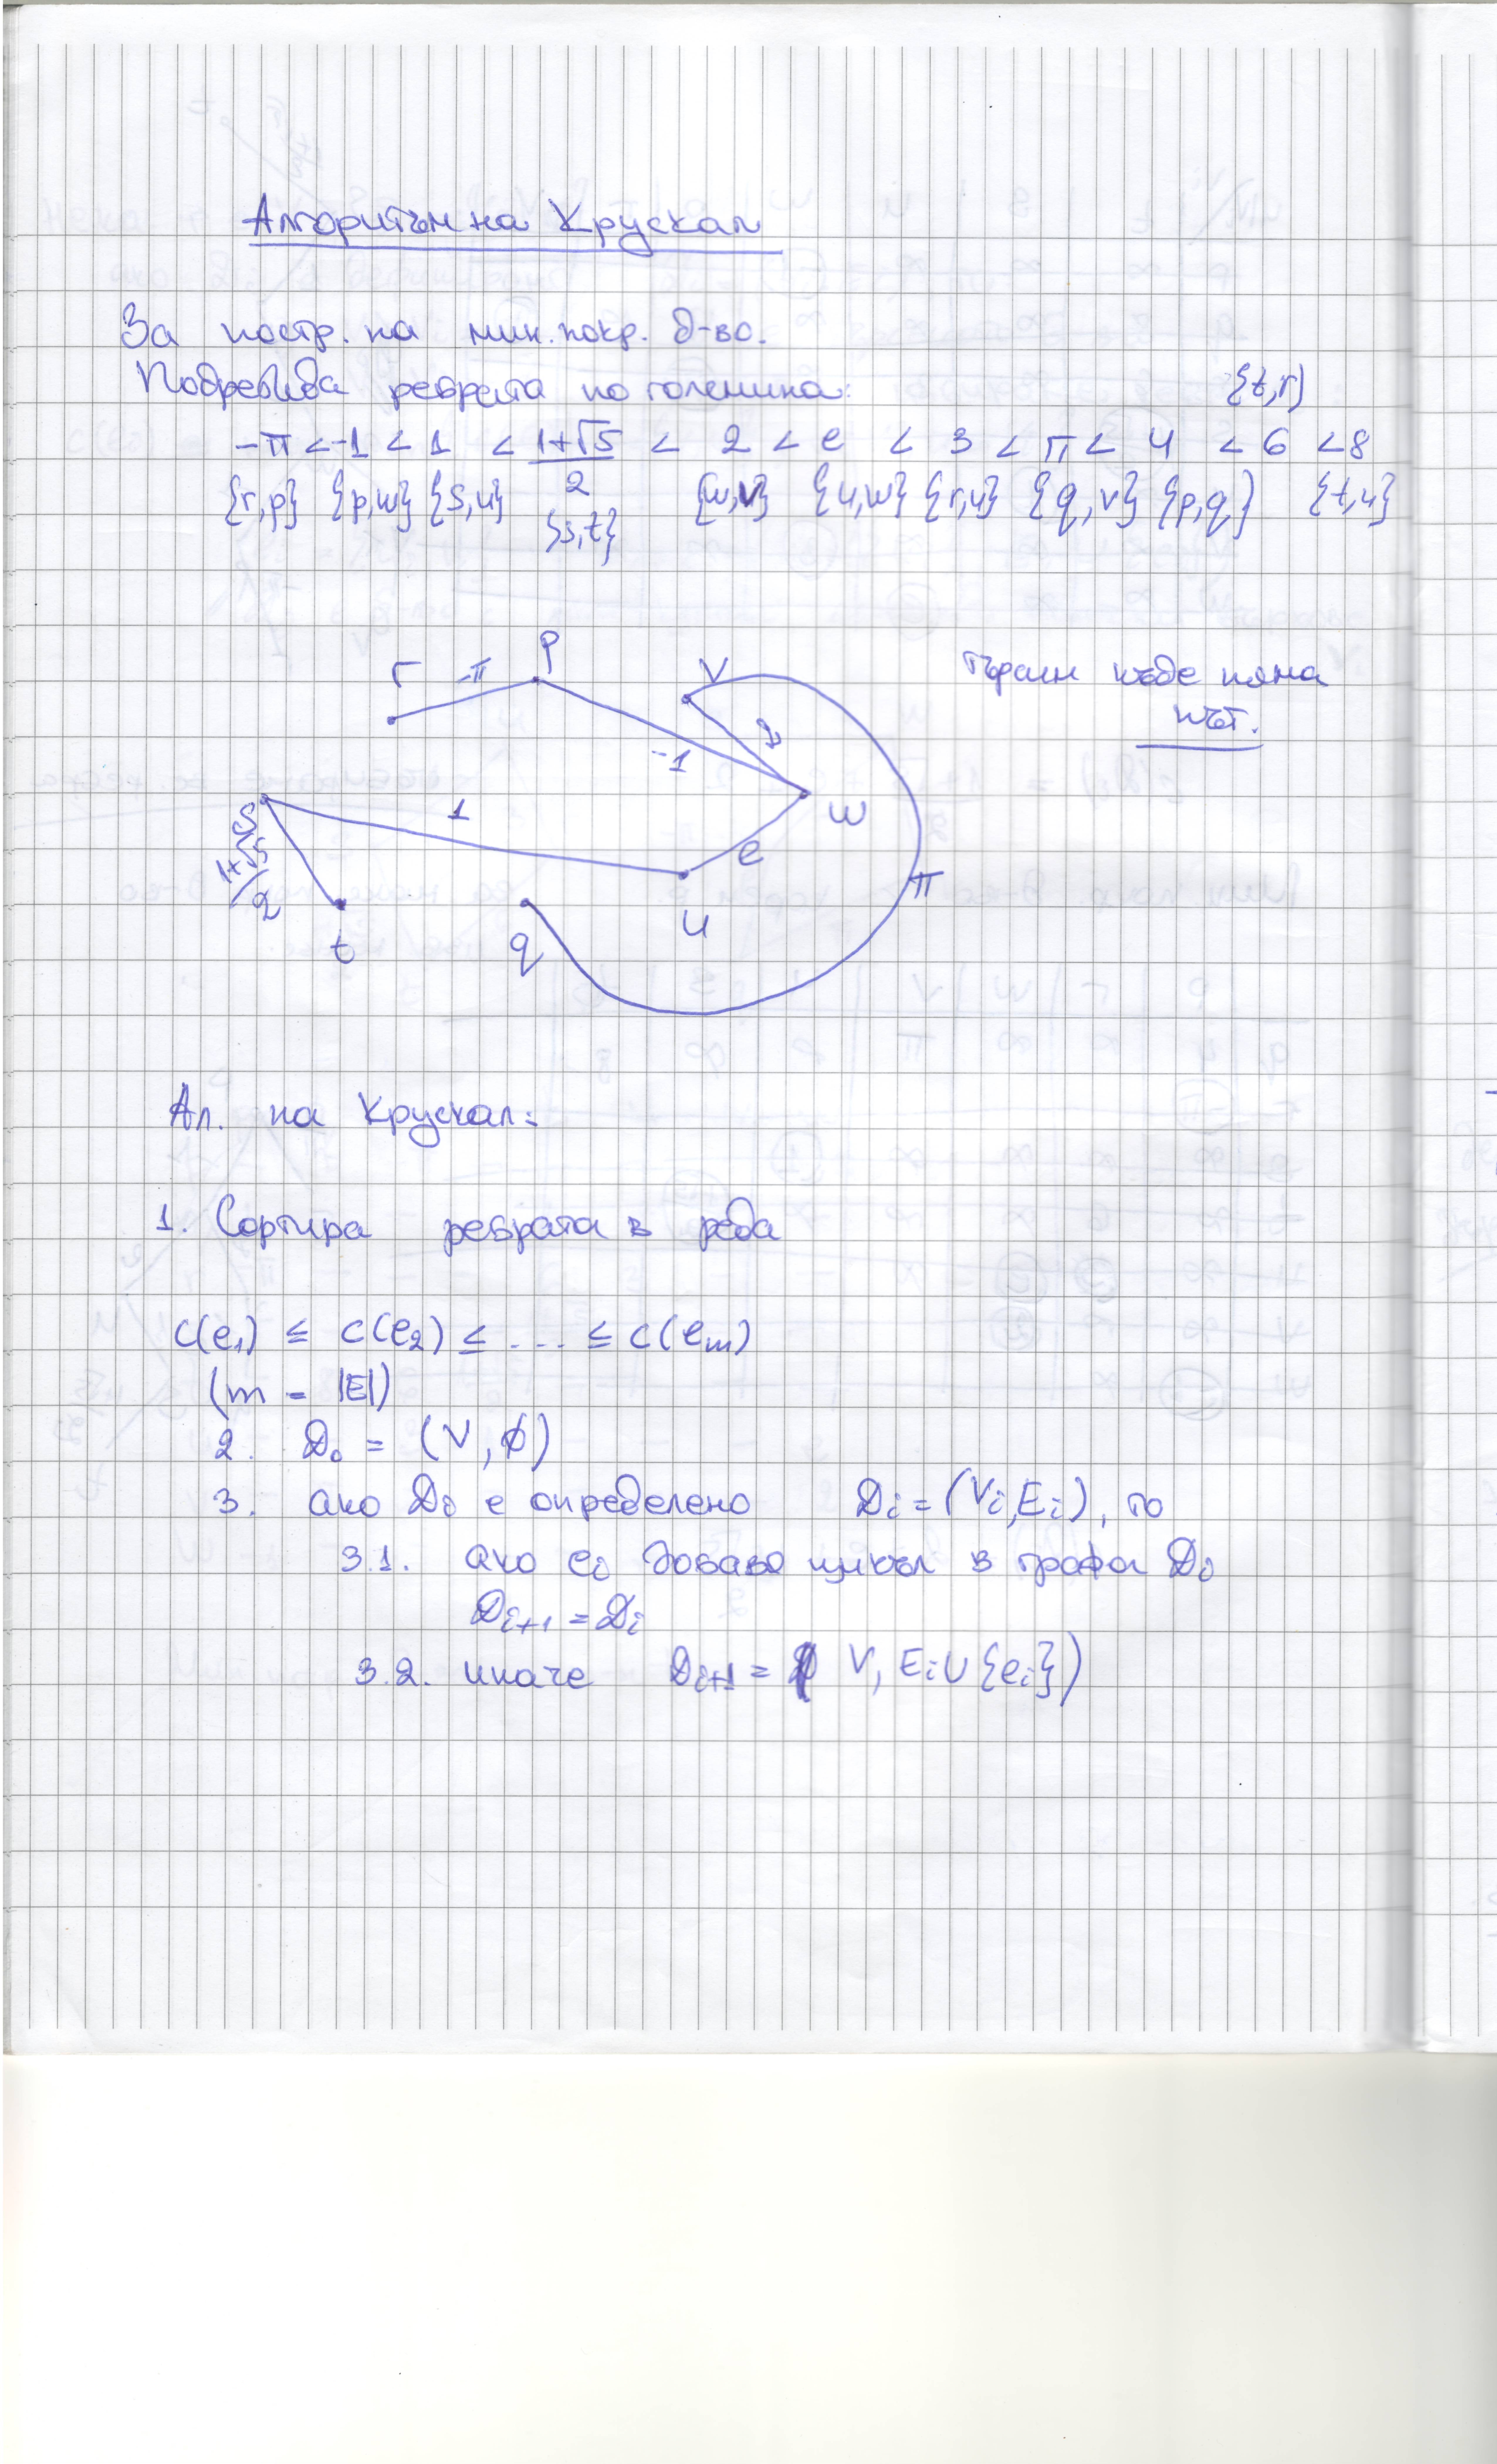 Алгоритъм на Крускал
За постр. на мин. покр. д-во.
Подрежда ребрата по големина:
{t,r}
-π < -1 < 1 < 1+√5 < 2 < e < 3 < π < 4 < 6 < 8
{r,p} {p,w} {s,u} 2 {w,v} {u,w} {r,u} {q,v} {p,q} {t,u}
{s,t}
r -π p v
Търсим къде няма
път.
2
-1
s 1 w
1+√5
2
e
π
t q u
Ал. на Крускал:
1. Сортира ребрата в реда
c(e₁) ≤ c(e₂) ≤ ... ≤ c(eₘ)
(m = |E|)
2. D₀ = (V, ∅)
3. ако Dᵢ е определено Dᵢ = (Vᵢ, Eᵢ), то
3.1. ако eᵢ добавя цикъл в графа Dᵢ
Dᵢ₊₁ = Dᵢ
3.2. иначе Dᵢ₊₁ = ( V, Eᵢ ∪ {eᵢ})